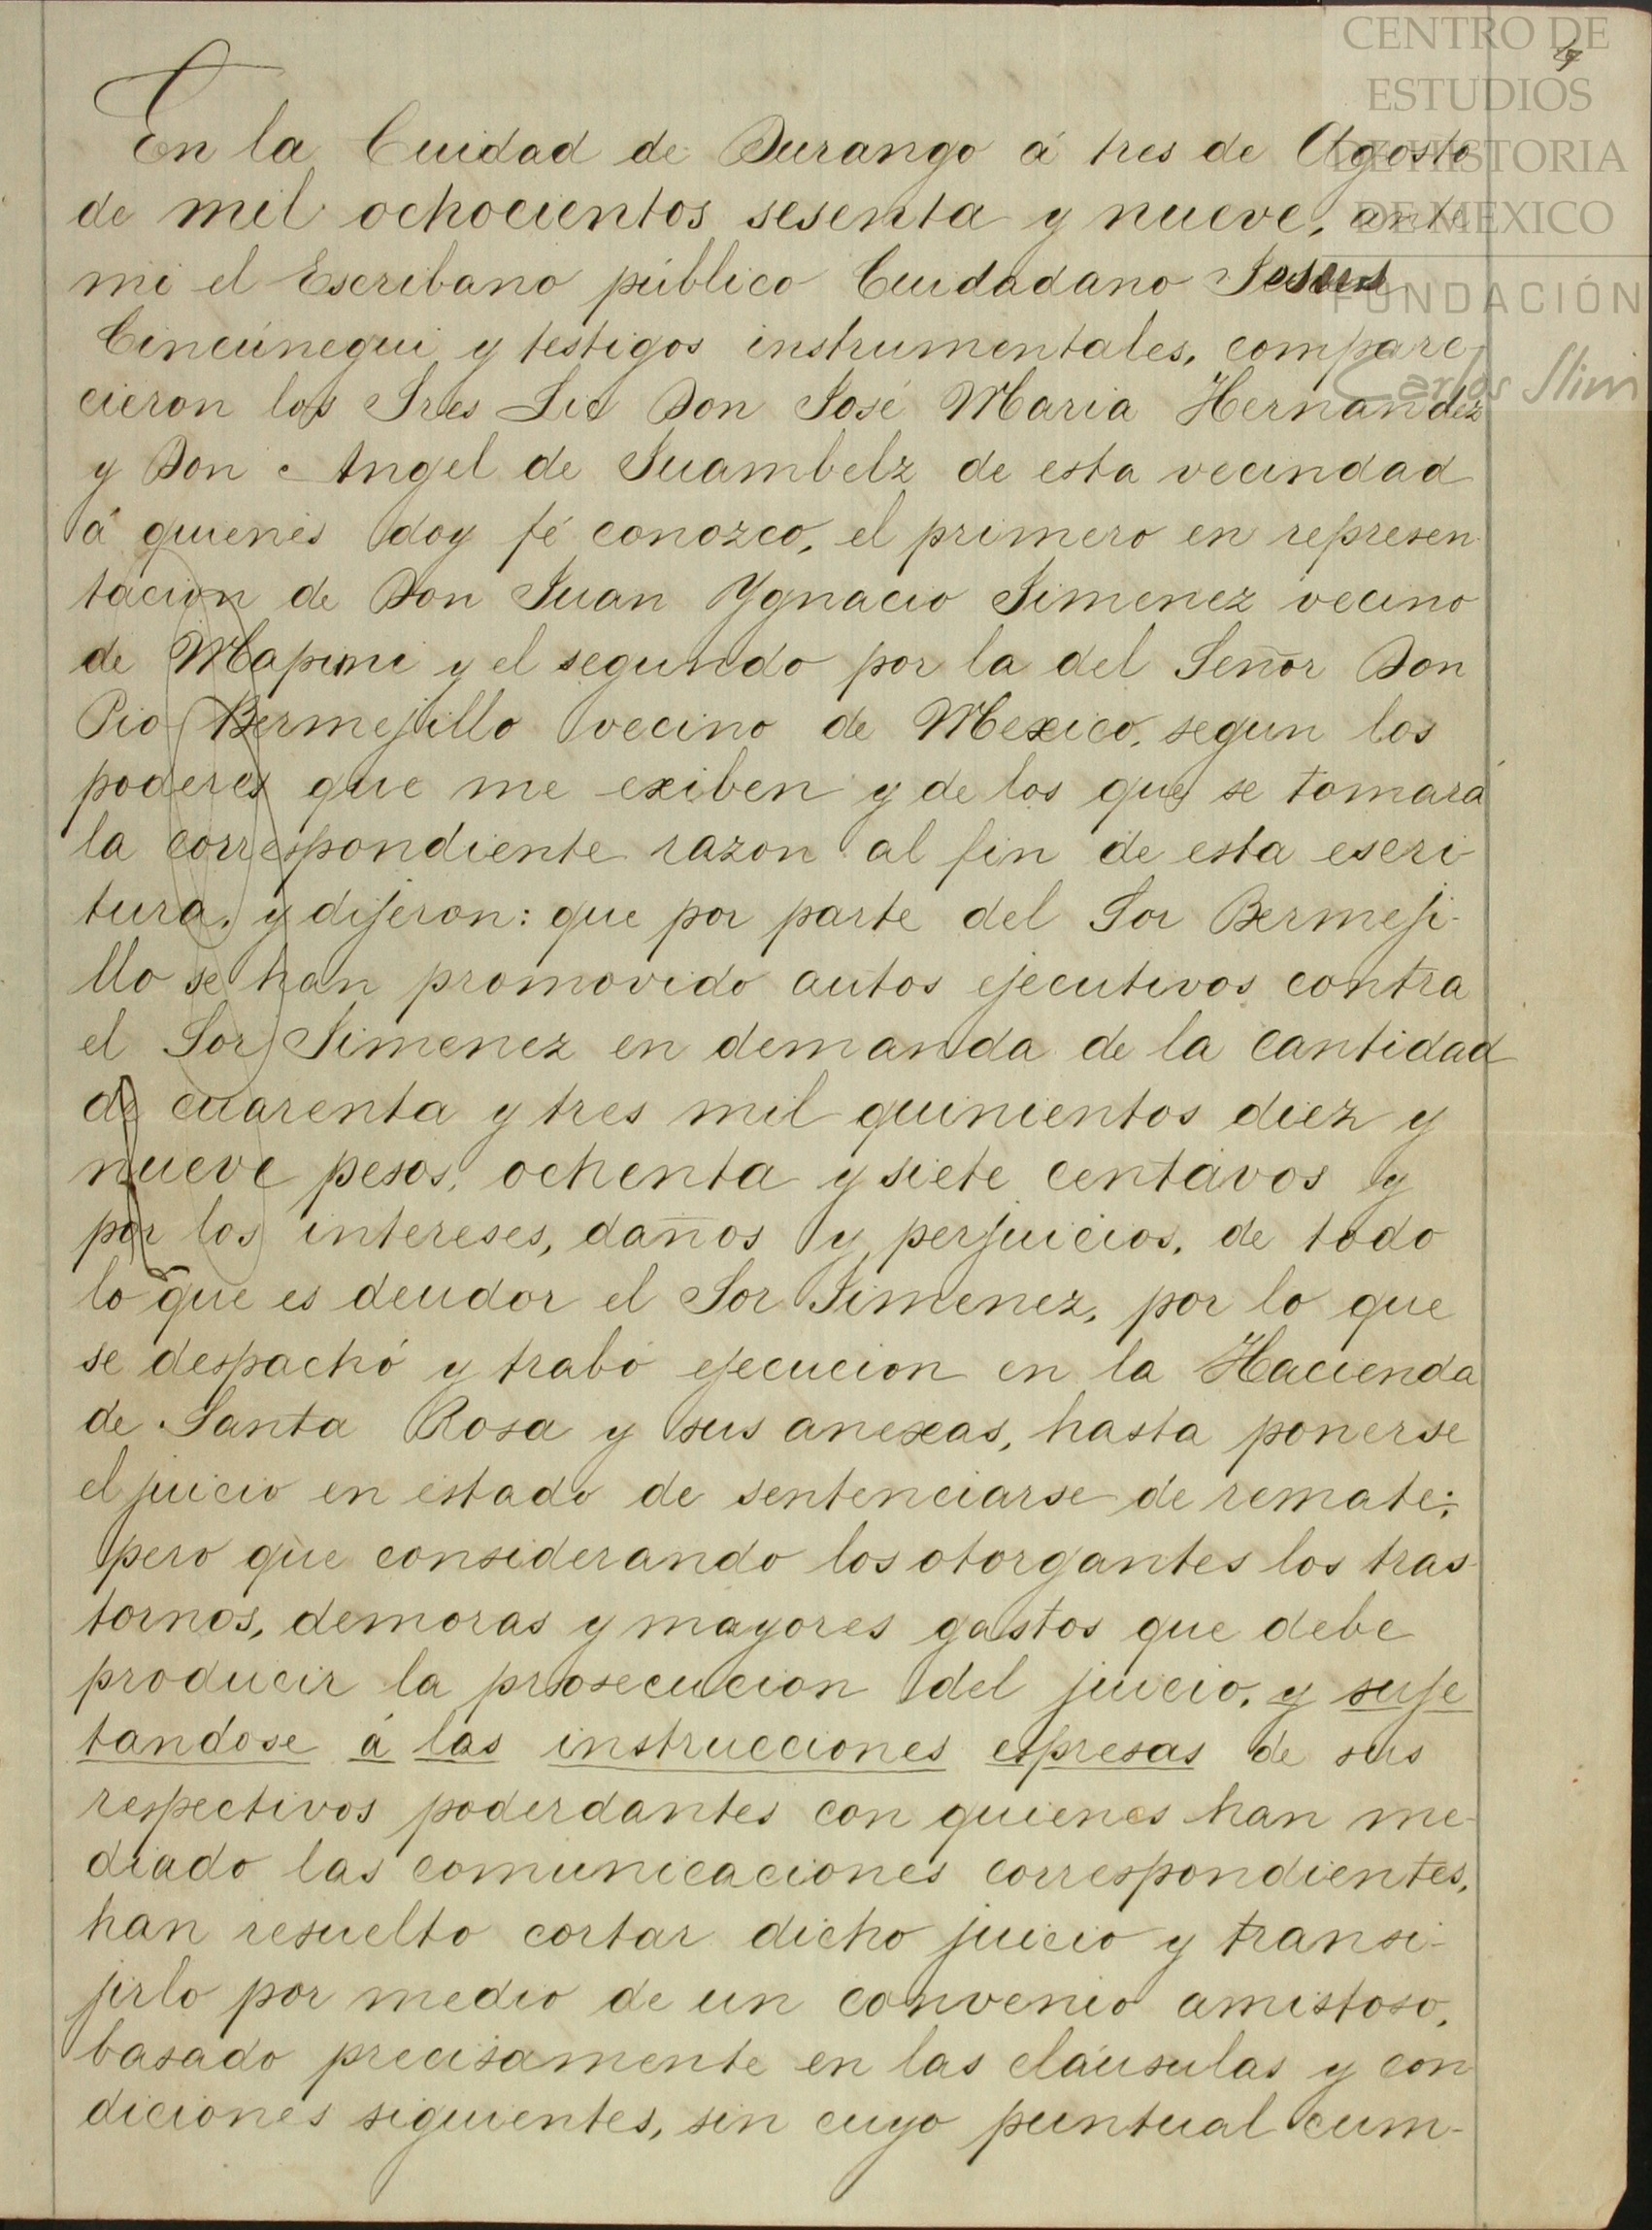 CENTRO DE
ESTUDIOS
DE HISTORIA
DE MEXICO
FUNDACIÓN
Carlos Slim
En la Cuidad de Durango á tres de Agosto
de mil ochocientos sesenta y nueve, ante
mi el Escribano público Cuidadano Jesus
Cincúnegui y testigos instrumentales, compare-
cieron los Sres Lic Don José Maria Hernandez
y Don Angel de Juambelz de esta vecindad
á quienes doy fé conozco, el primero en represen-
tacion de Don Juan Ygnacio Jimenez vecino
de Mapimi y el segundo por la del Señor Don
Pio Bermejillo vecino de Mexico, segun los
poderes que me exiben y de los que se tomará
la correspondiente razon al fin de esta escri-
tura, y dijeron: que por parte del Sor Bermeji-
llo se han promovido autos ejecutivos contra
el Sor Jimenez en demanda de la cantidad
de cuarenta y tres mil quinientos diez y
nueve pesos, ochenta y siete centavos y
por los intereses, daños y perjuicios, de todo
lo que es deudor el Sor Jimenez, por lo que
se despachó y trabó ejecucion en la Hacienda
de Santa Rosa y sus anexas, hasta ponerse
el juicio en estado de sentenciarse de remate;
pero que considerando los otorgantes los tras-
tornos, demoras y mayores gastos que debe
producir la prosecucion del juicio, y suje
tandose á las instrucciones espresas de sus
respectivos poderdantes con quienes han me-
diado las comunicaciones correspondientes,
han resuelto cortar dicho juicio y transi-
jirlo por medio de un convenio amistoso,
basado precisamente en las cláusulas y con
diciones siguientes, sin cuyo puntual cum-